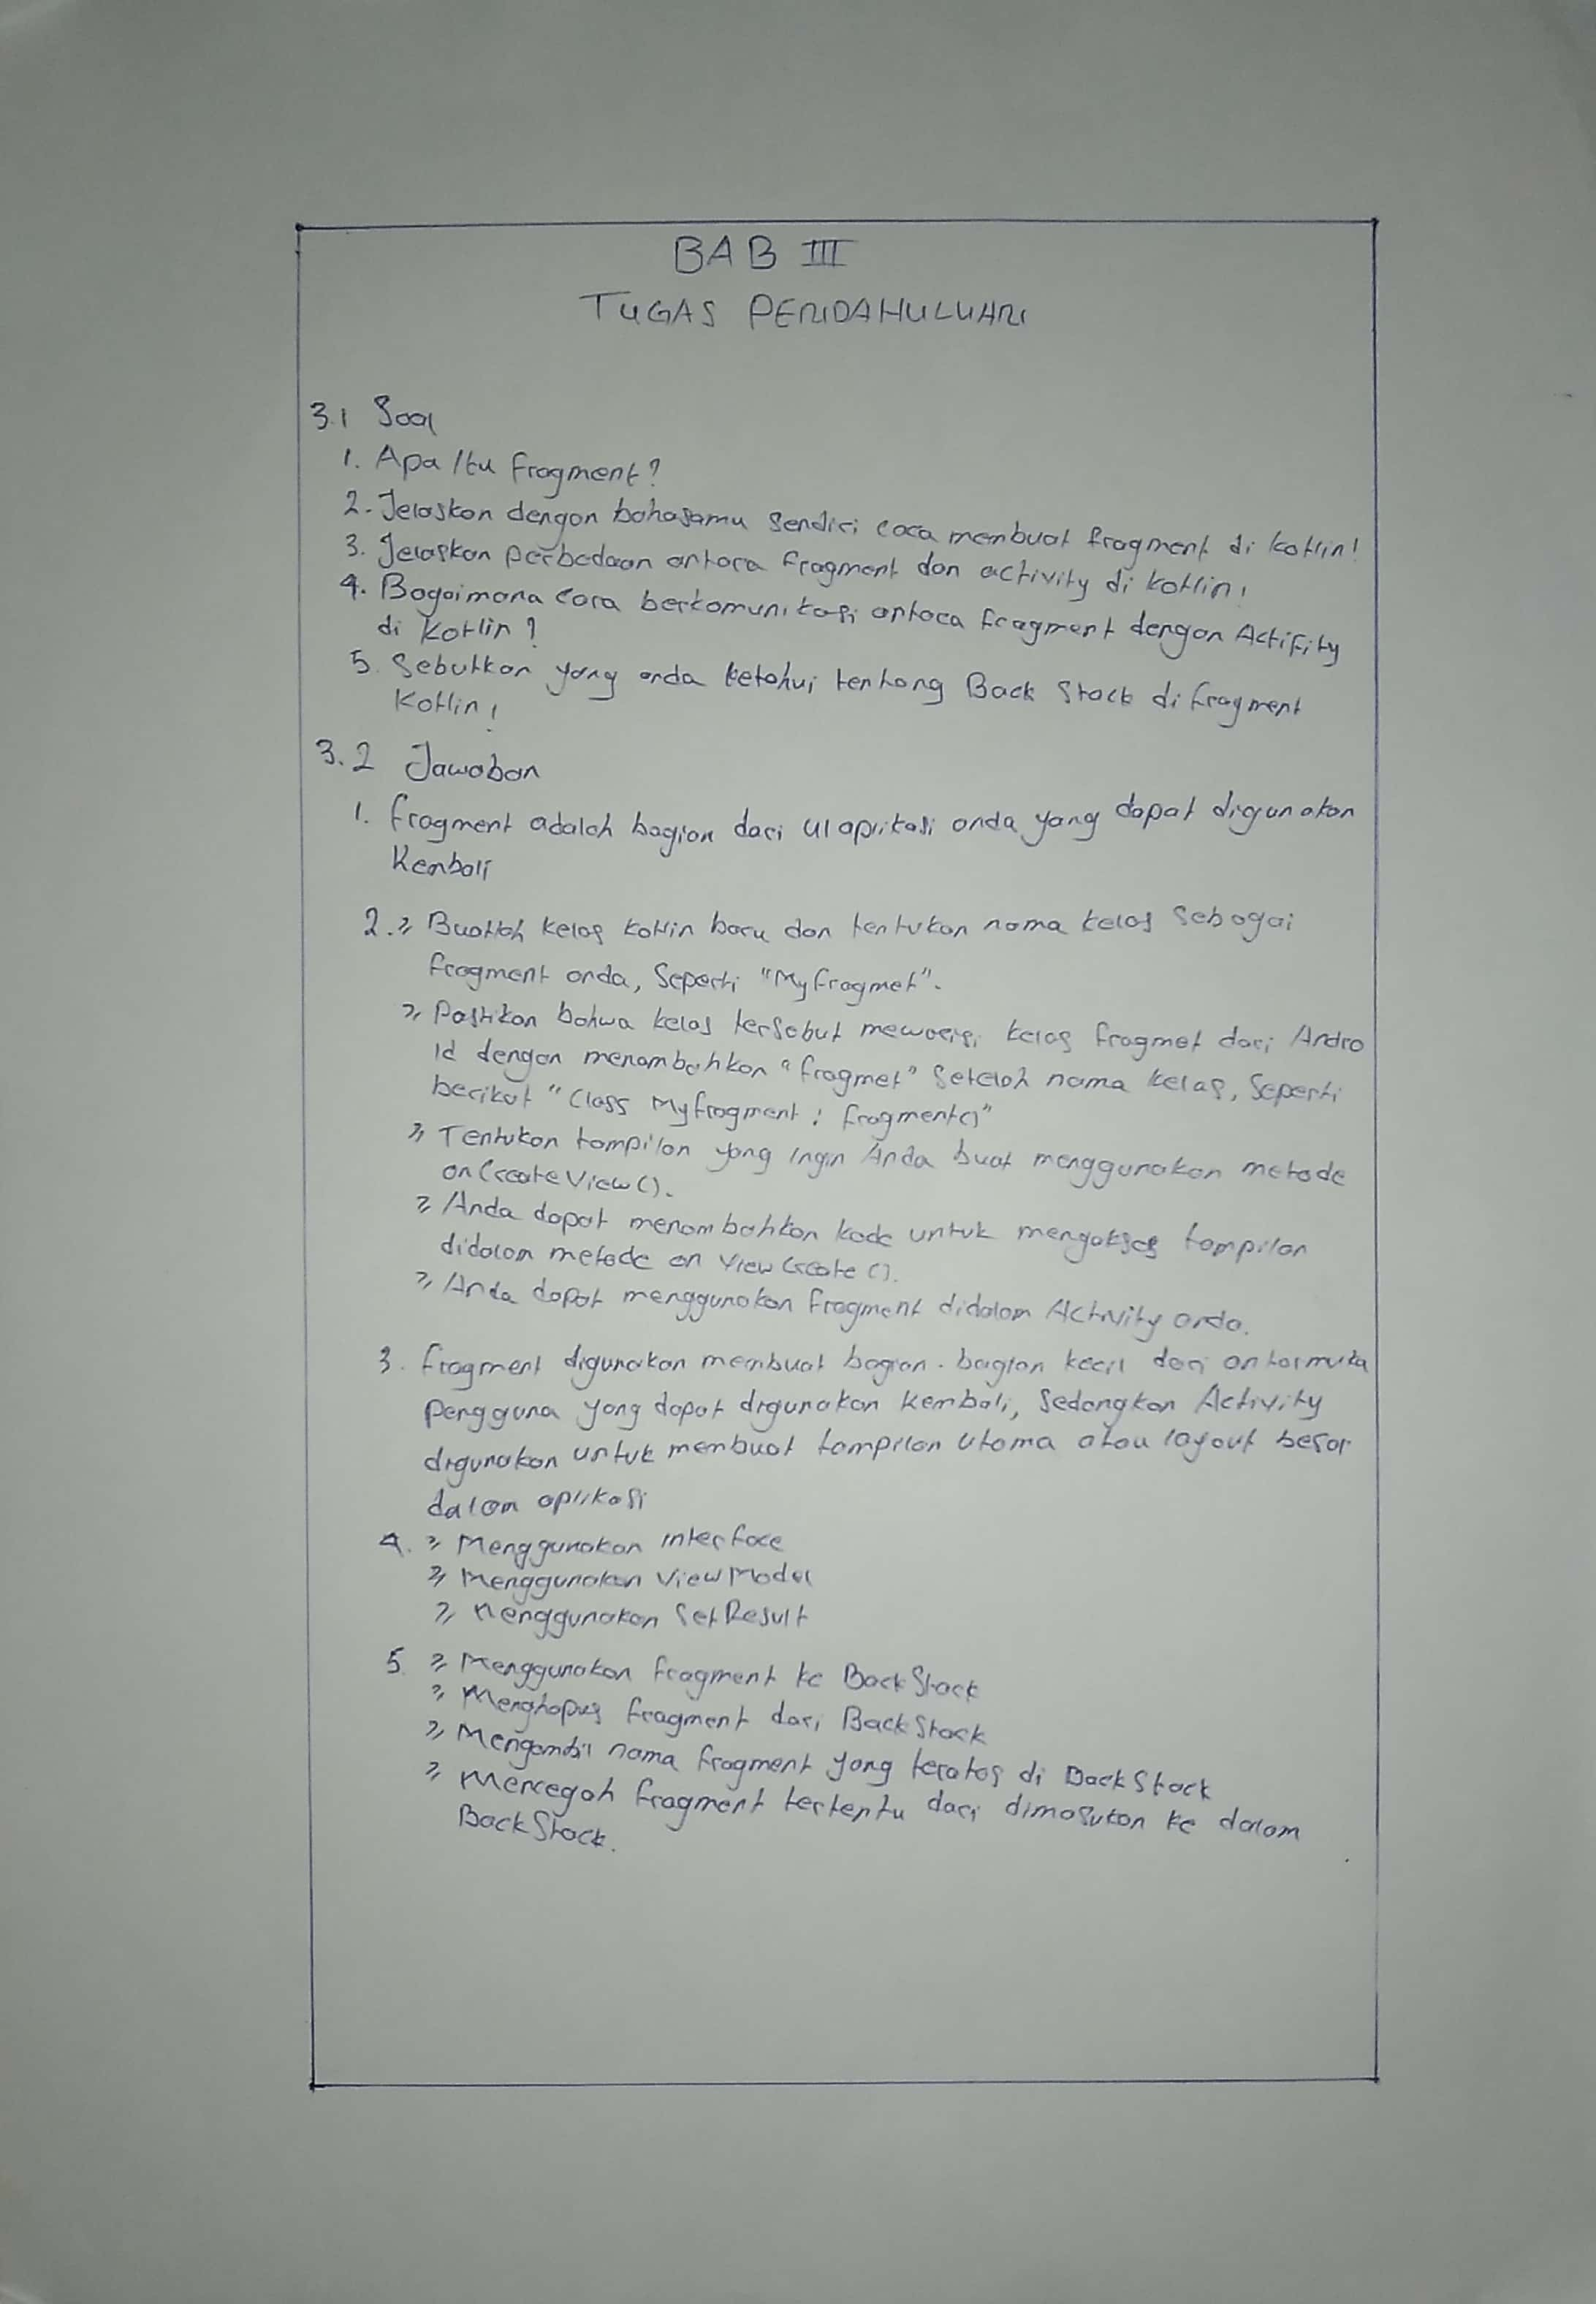 BAB III
TUGAS PENDAHULUAN
3.1 Soal
1. Apa Itu fragment?
2. Jelaskan dengan bahasamu sendiri cara membuat fragment di kotlin!
3. Jelaskan perbedaan antara fragment dan activity di kotlin!
4. Bagaimana cara berkomunikasi antara fragment dengan Actifity
di Kotlin?
5. Sebutkan yang anda ketahui tentang Back Stack di fragment
Kotlin!
3.2 Jawaban
1. fragment adalah bagian dari UI aplikasi anda yang dapat digunakan
Kembali
2. » Buatlah kelas kotlin baru dan tentukan nama kelas sebagai
fragment anda, Seperti "Myfragmet".
» Pastikan bahwa kelas tersebut mewarisi kelas fragmet dari Andro
Id dengan menambahkan "fragmet" setelah nama kelas, Seperti
berikut "Class Myfragment : fragment()"
» Tentukan tampilan yang ingin Anda buat menggunakan metode
onCreateView().
» Anda dapat menambahkan kode untuk mengakses tampilan
didalam metode on ViewCreate().
» Anda dapat menggunakan fragment didalam Activity anda.
3. fragment digunakan membuat bagian-bagian kecil dari antarmuka
pengguna yang dapat digunakan kembali, Sedangkan Activity
digunakan untuk membuat tampilan utama atau layout besar
dalam aplikasi
4. » Menggunakan interface
» Menggunakan ViewModel
» Menggunakan SetResult
5 » Menggunakan fragment ke BackStack
» Menghapus fragment dari BackStack
» Mengambil nama fragment yang teratas di BackStack
» Mencegah fragment tertentu dari dimasukan ke dalam
BackStack.